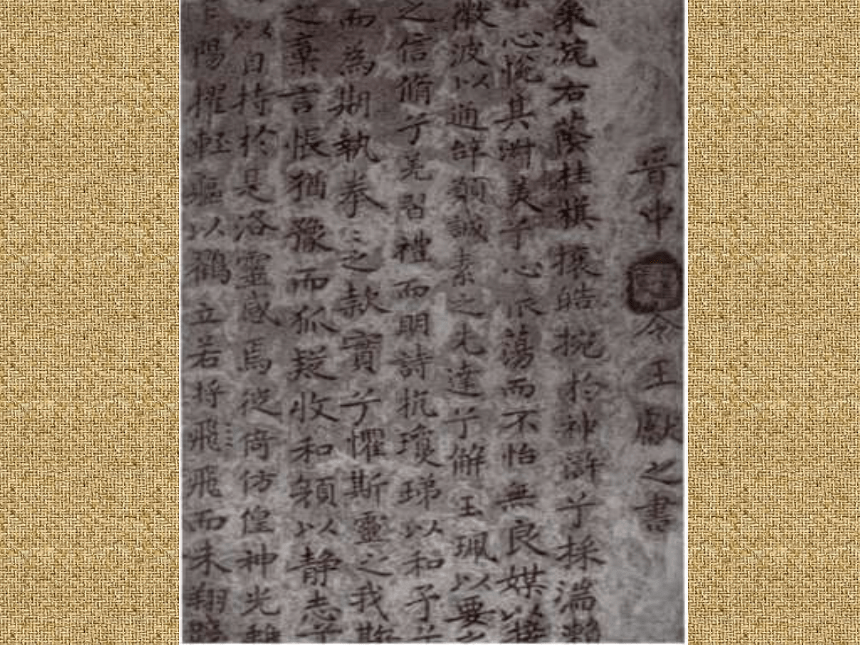 晉中書令王獻之書
采旄右蔭桂旗攘皓捥於神滸兮採湍瀨
心悅其淑美兮心振蕩而不怡無良媒以接
微波以通辭願誠素之先達兮解玉珮以要之
之信脩兮羌習禮而明詩抗瓊珶以和予兮
而為期執拳〻之款實兮懼斯靈之我欺
之棄言悵猶豫而狐疑收和顏以静志兮
以自持於是洛靈感焉徙倚仿偟神光離
陽擢輕軀以鶴立若将飛飛而未翔踐